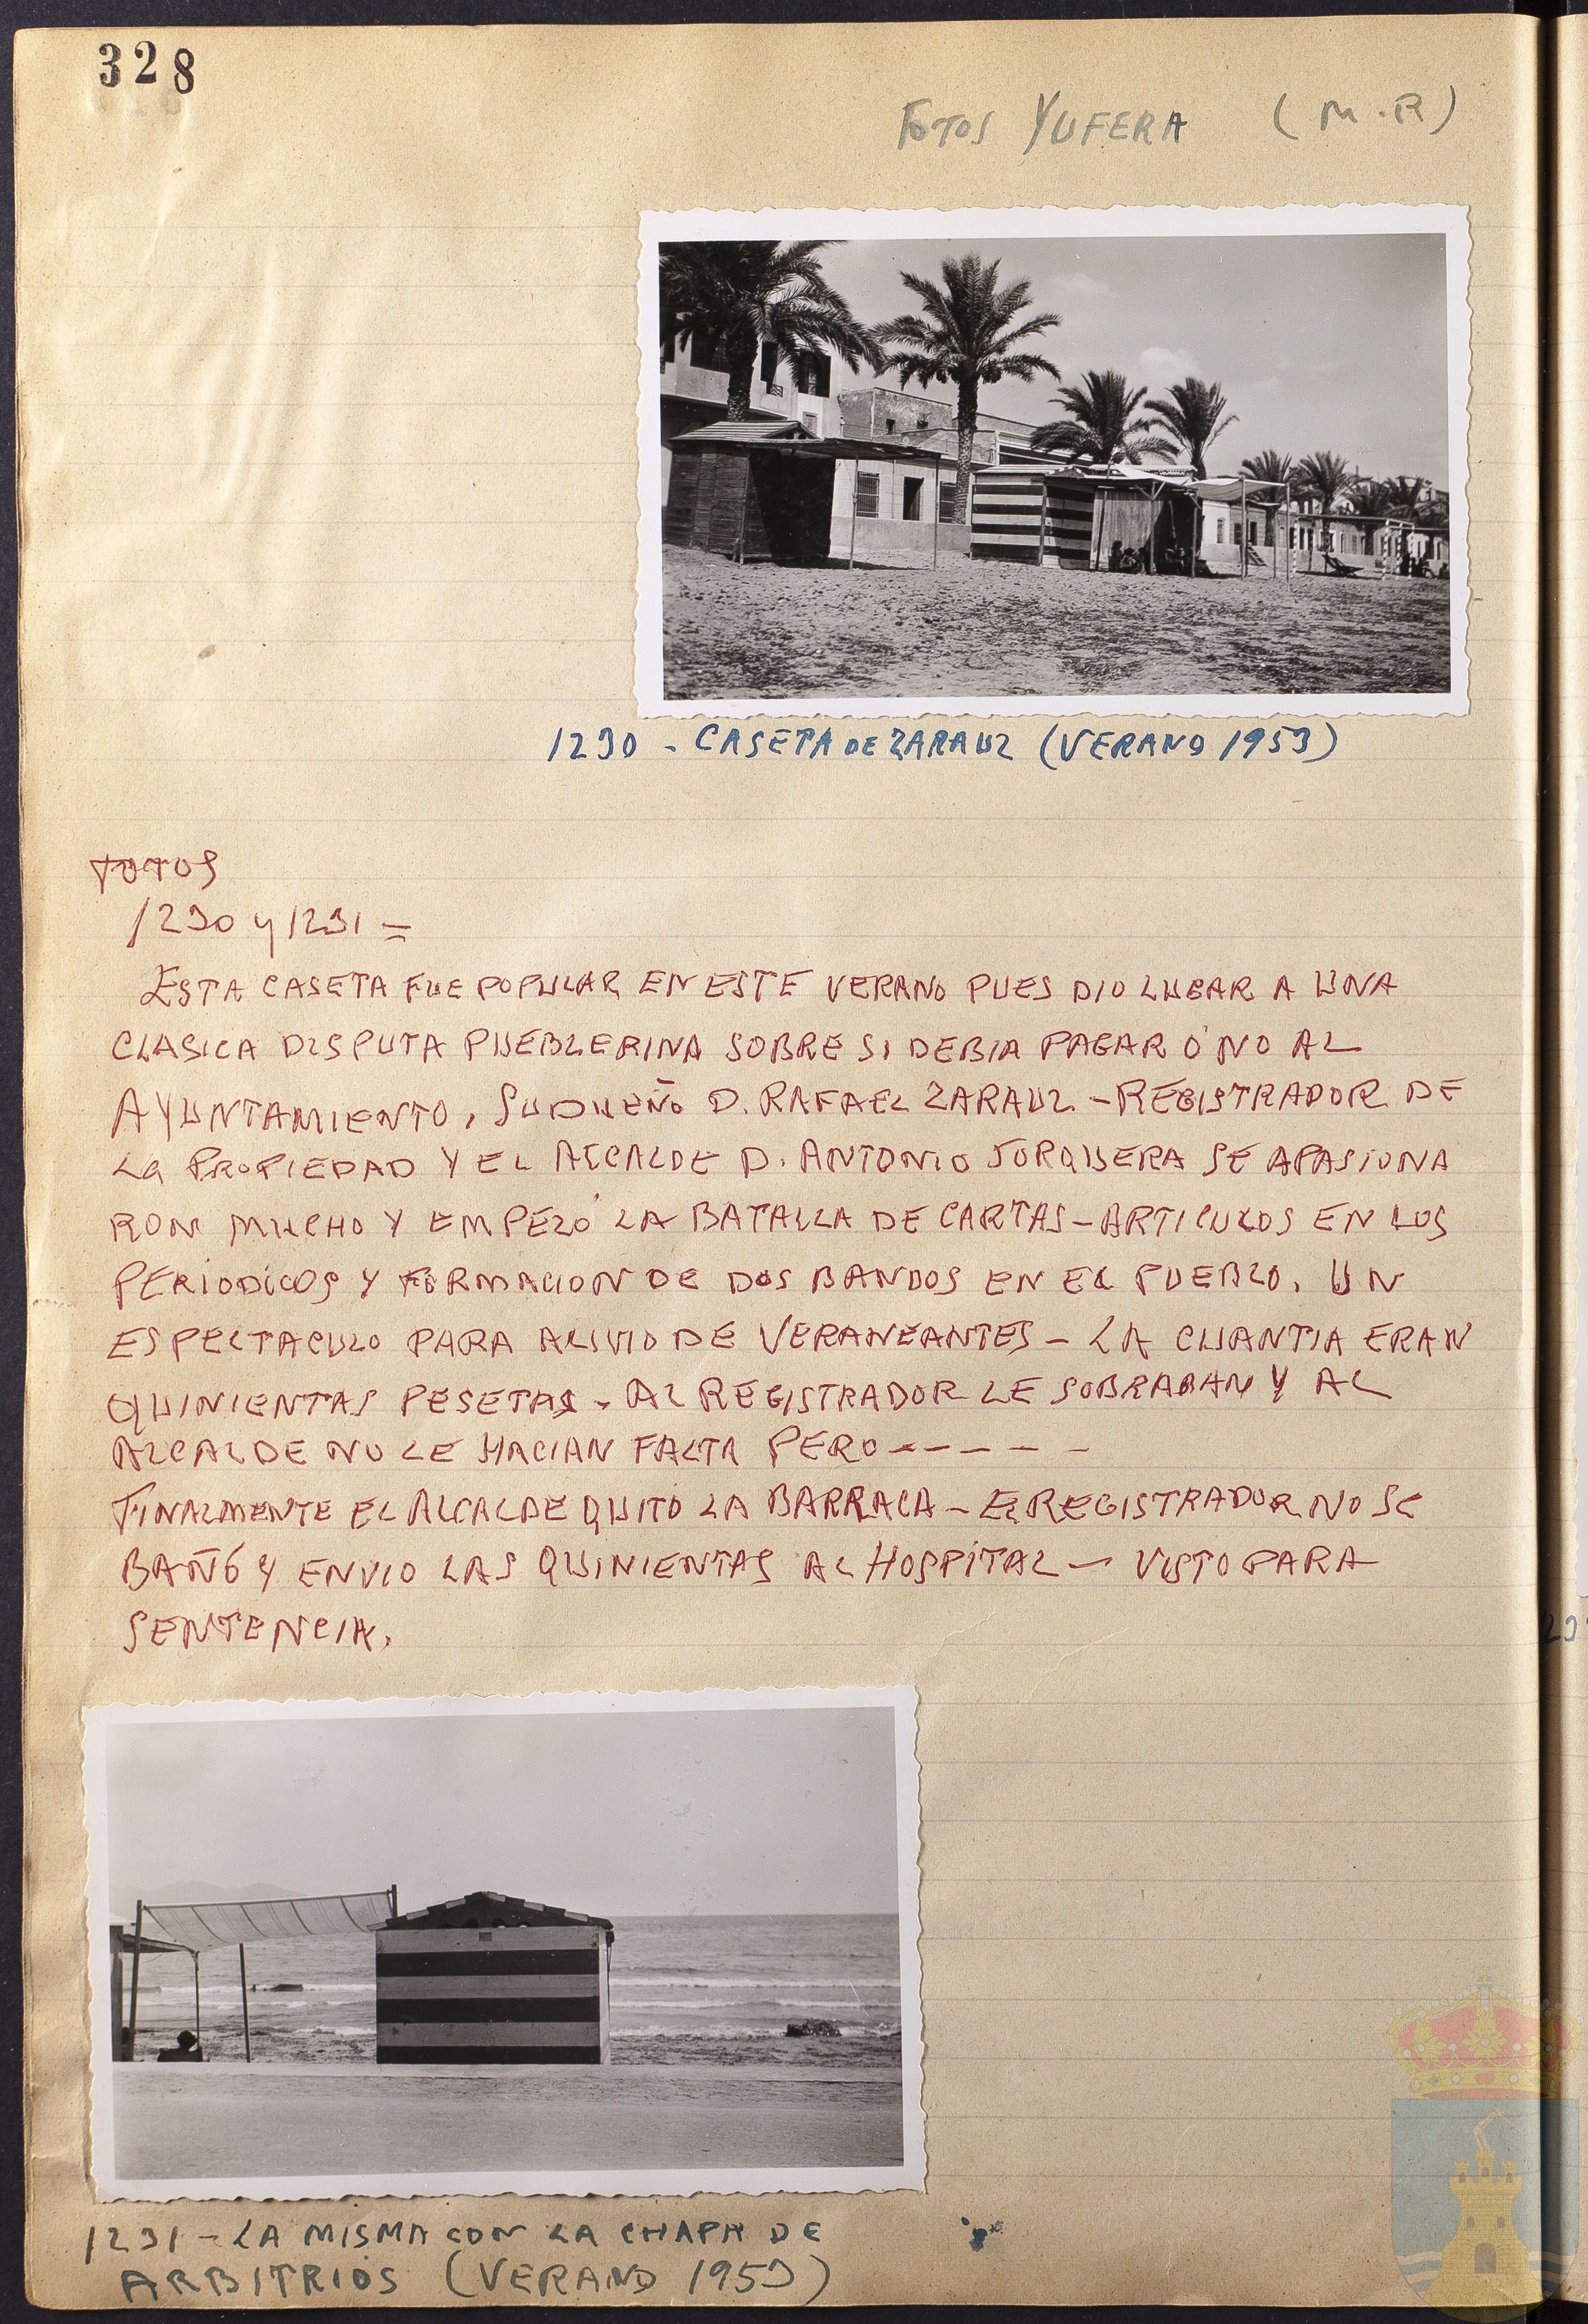 328
FOTOS YUFERA (M.R)
1230 - CASETA DE ZARAUZ (VERANO 1953)
FOTOS
1230 y 1231 =
ESTA CASETA FUE POPULAR EN ESTE VERANO PUES DIO LUGAR A UNA
CLASICA DISPUTA PUEBLERINA SOBRE SI DEBIA PAGAR Ó NO AL
AYUNTAMIENTO, SU DUEÑO D. RAFAEL ZARAUZ - REGISTRADOR DE
LA PROPIEDAD Y EL ALCALDE D. ANTONIO JORQUERA SE APASIONA
RON MUCHO Y EMPEZÓ LA BATALLA DE CARTAS - ARTICULOS EN LOS
PERIODICOS Y FORMACION DE DOS BANDOS EN EL PUEBLO. UN
ESPECTACULO PARA ALIVIO DE VERANEANTES - LA CUANTIA ERAN
QUINIENTAS PESETAS - AL REGISTRADOR LE SOBRABAN Y AL
ALCALDE NO LE HACIAN FALTA PERO - - - - - -
FINALMENTE EL ALCALDE QUITÓ LA BARRACA - EL REGISTRADOR NO SE
BAÑÓ Y ENVIO LAS QUINIENTAS AL HOSPITAL - VISTO PARA
SENTENCIA.
1231 - LA MISMA CON LA CHAPA DE
ARBITRIOS (VERANO 1953)